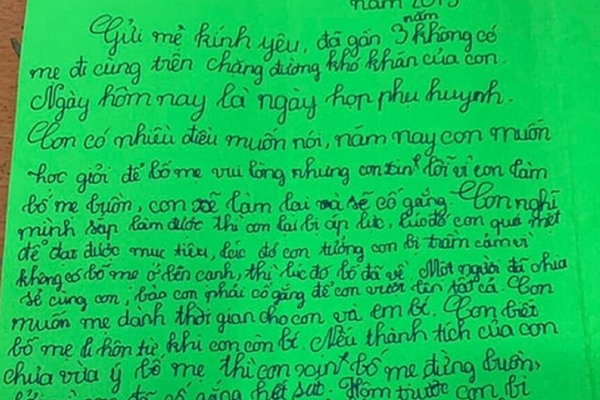 năm 2015
Gửi mẹ kính yêu, đã gần 3 năm không có
mẹ đi cùng trên chặng đường khó khăn của con.
Ngày hôm nay là ngày họp phụ huynh.
Con có nhiều điều muốn nói, năm nay con muốn
học giỏi để bố mẹ vui lòng nhưng con xin lỗi vì con làm
bố mẹ buồn, con sẽ làm lại và sẽ cố gắng. Con nghĩ
mình sắp làm được thì con lại bị áp lực, lúc đó con quá mệt
để đạt được mục tiêu, lúc đó con tưởng con bị trầm cảm vì
không có bố mẹ ở bên cạnh, thì lúc đó bố đã về. Một người đã chia
sẻ cùng con, bảo con phải cố gắng để con vượt lên tất cả. Con
muốn mẹ dành thời gian cho con và em bé. Con biết
bố mẹ li hôn từ khi con còn bé. Nếu thành tích của con
chưa vừa ý bố mẹ thì con xin bố mẹ đừng buồn,
cố gắng hết sức. Hôm trước con bị